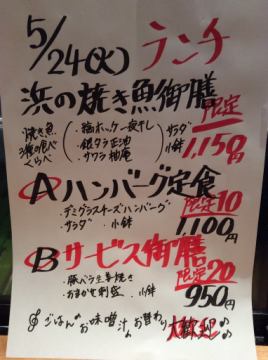 5/24(火) ランチ
浜の焼き魚御膳
限定
焼き魚
3種の食べ
くらべ
・縞ホッケ一夜干し
・銀ダラ正油
・サワラ柚庵
サラダ
小鉢
1,150円
Aハンバーグ定食
限定10
・デミグラスチーズハンバーグ
・サラダ ・小鉢
1,100円
Bサービス御膳
限定20
・豚バラ生姜焼き
・おまかせ刺盛 ・小鉢
950円
ごはん♪お味噌汁♪お替わり